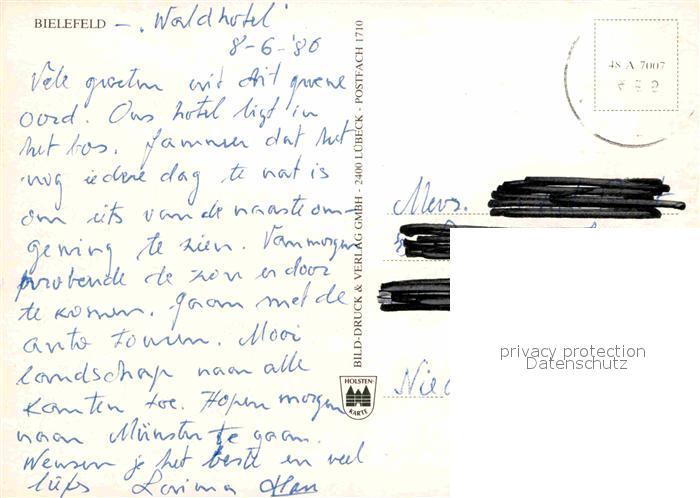 BIELEFELD – "Waldhotel"
8-6-'86
Vele groeten uit dit groene
oord. Ons hotel ligt in
het bos. Jammer dat het
nog iedere dag te nat is
om iets van de naaste om-
geving te zien. Vanmorgen
probeerde de zon er door
te komen. Gaan met de
auto touren. Mooi
landschap naar alle
kanten toe. Hopen morgen
naar Münster te gaan.
Wensen je het beste en veel
liefs
BILD-DRUCK & VERLAG GMBH - 2400 LÜBECK - POSTFACH 1710
HOLSTEN-
KARTE
48 A 7007
Mevr.
privacy protection
Datenschutz